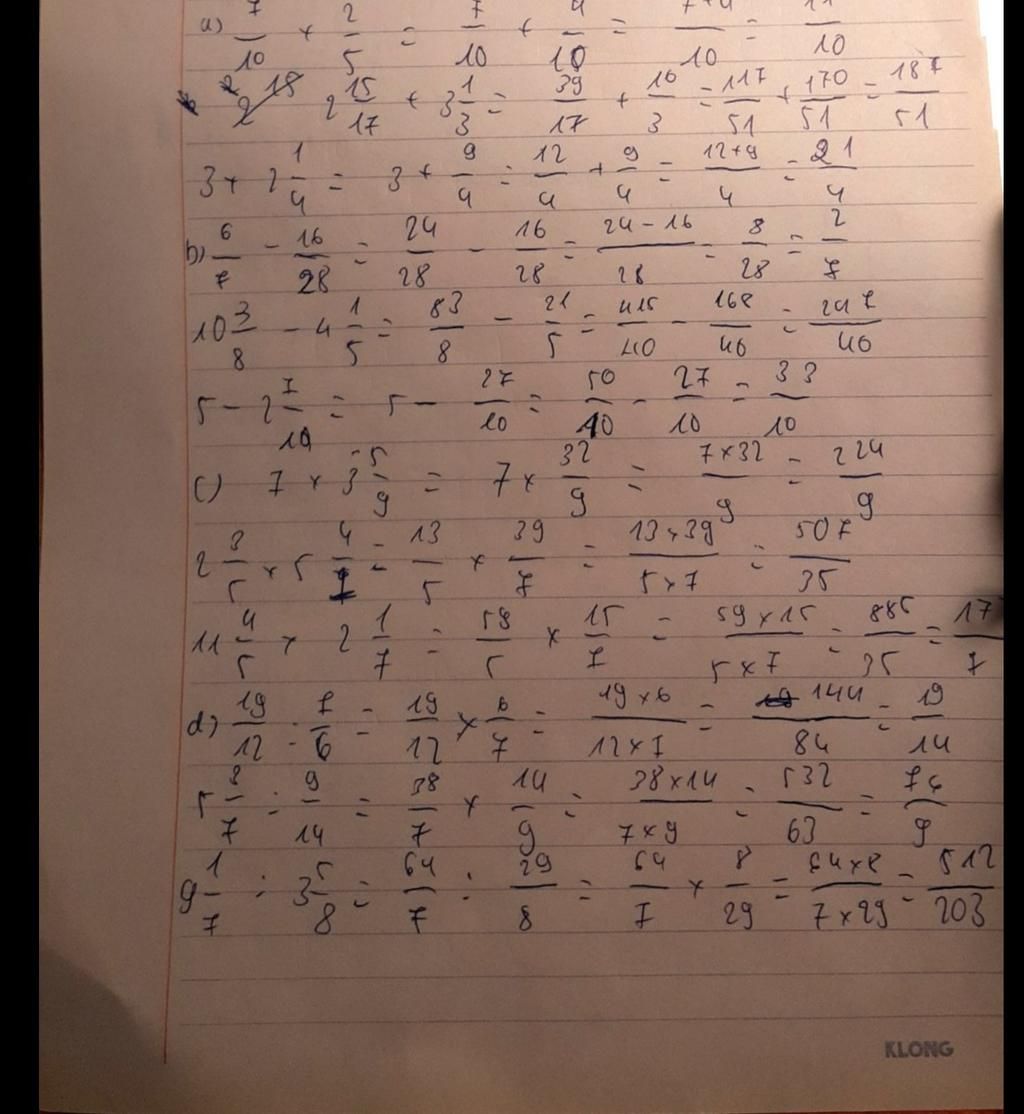 a) 7/10 + 2/5 = 7/10 + 4/10 = 7+4/10 = 11/10
2 15/17 + 3 1/3 = 39/17 + 10/3 = 117/51 + 170/51 = 187/51
3 + 2 1/4 = 3 + 9/4 = 12/4 + 9/4 = 12+9/4 = 21/4
b) 6/7 - 16/28 = 24/28 - 16/28 = 24-16/28 = 8/28 = 2/7
10 3/8 - 4 1/5 = 83/8 - 21/5 = 415/40 - 168/40 = 247/40
5 - 2 7/10 = 5 - 27/10 = 50/10 - 27/10 = 33/10
c) 7 × 3 5/9 = 7 × 32/9 = 7×32/9 = 224/9
2 3/5 × 5 4/7 = 13/5 × 39/7 = 13×39/5×7 = 507/35
11 4/5 × 2 1/7 = 59/5 × 15/7 = 59×15/5×7 = 885/35 = 17/7
d) 19/12 : 7/6 = 19/12 × 6/7 = 19×6/12×7 = 144/84 = 19/14
5 3/7 : 9/14 = 38/7 × 14/9 = 38×14/7×9 = 532/63 = 76/9
9 1/7 : 3 5/8 = 64/7 : 29/8 = 64/7 × 8/29 = 64×8/7×29 = 512/203
KLONG